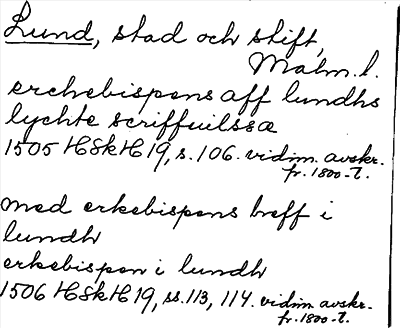 Lund, stad och stift,
Malm. l.
erchebispens aff lundhs
lychte scriffuilssa
1505 HSkH 19, s. 106. vidim. avskr.
fr. 1800-t.
med erkebispens breff i
lundh
erkebispen i lundh
1506 HSkH 19, ss. 113, 114. vidim. avskr.
fr. 1800-t.